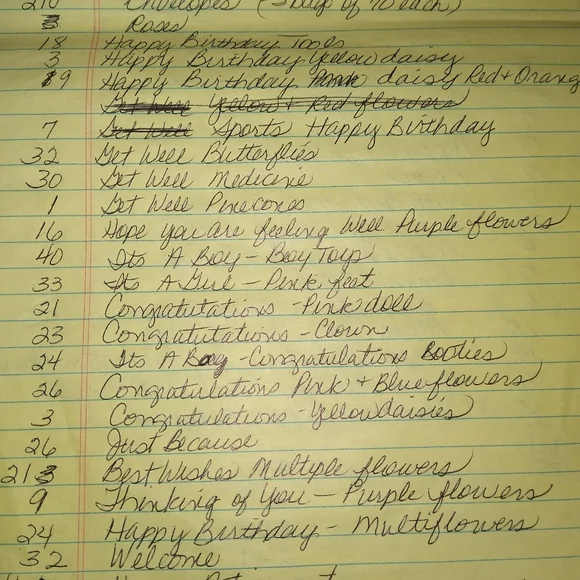 210 Envelopes (3 bags of 70 each)
3 Roses
18 Happy Birthday Tools
3 Happy Birthday Yellow daisy
9 Happy Birthday daisy Red + Orang
Get Well Yellow + Red flowers
7 Get Well Sports Happy Birthday
32 Get Well Butterflies
30 Get Well Medicine
1 Get Well Pinecones
16 Hope you are feeling Well Purple flowers
40 Its A Boy - Boy Toys
33 Its A Girl - Pink feet
21 Congratutations - Pink doll
23 Congratutations - Clown
24 Its A Boy - Congratulations Booties
26 Congratulations Pink + Blue flowers
3 Congratulations - Yellow daisies
26 Just Because
213 Best Wishes Multiple flowers
9 Thinking of You - Purple flowers
24 Happy Birthday - Multiflowers
32 Welcome